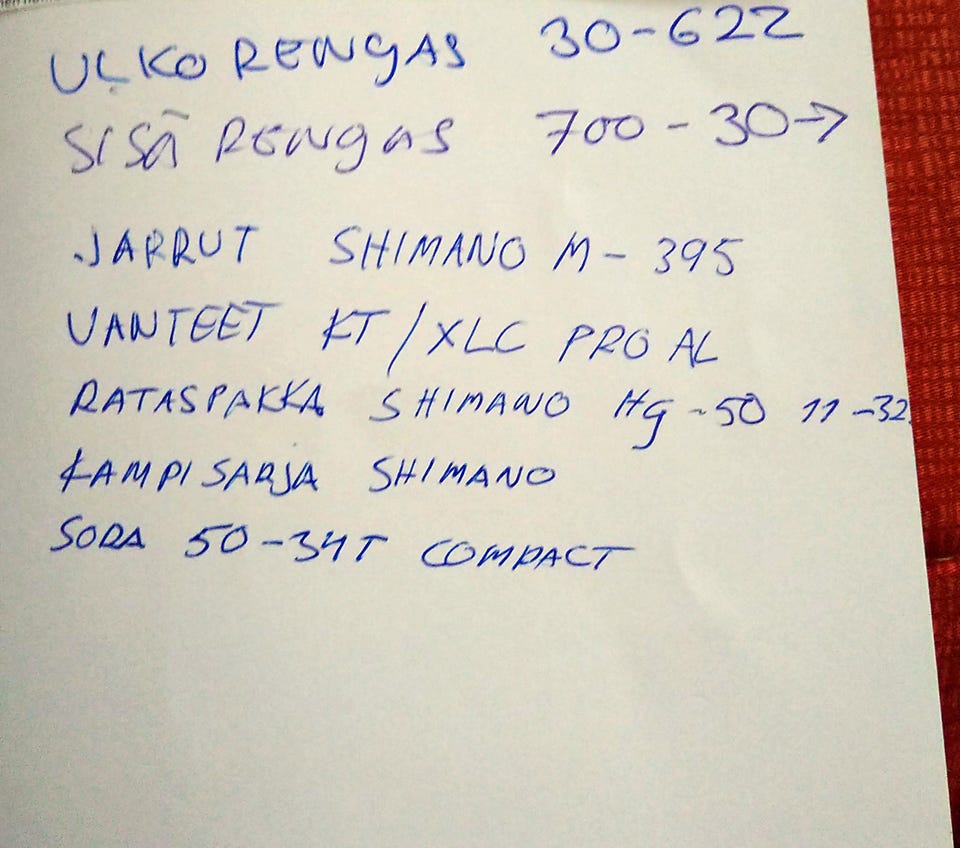 ULKORENGAS 30-622
SISÄRENGAS 700-30→
JARRUT SHIMANO M-395
VANTEET KT/XLC PRO AL
RATASPAKKA SHIMANO Hg-50 11-32
KAMPISARJA SHIMANO
SORA 50-34T COMPACT